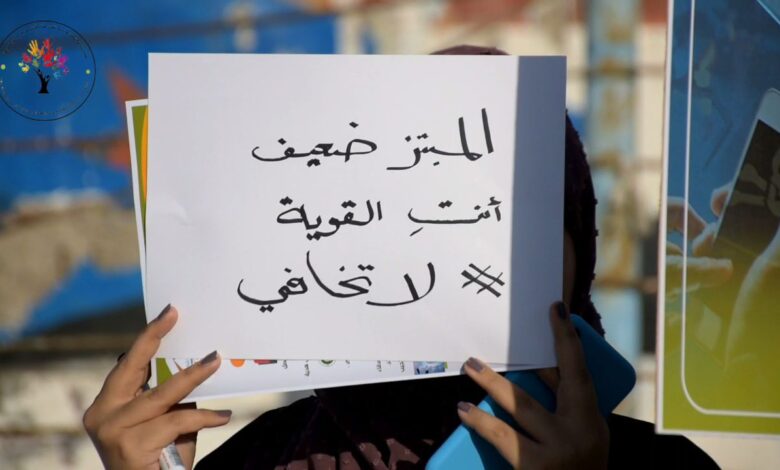 المبتز ضعيف
أنتِ القوية
# لا تخافي